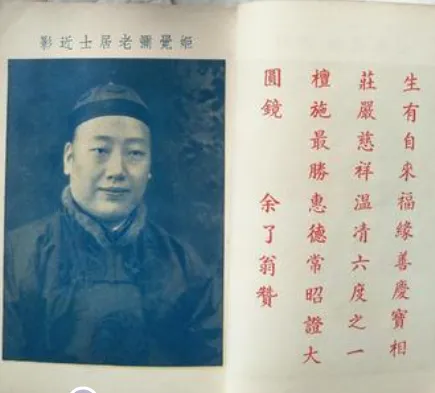 姬覺彌老居士近影
生有自來福緣善慶寶相
莊嚴慈祥溫凊六度之一
檀施最勝惠德常昭證大
圓鏡 余了翁贊